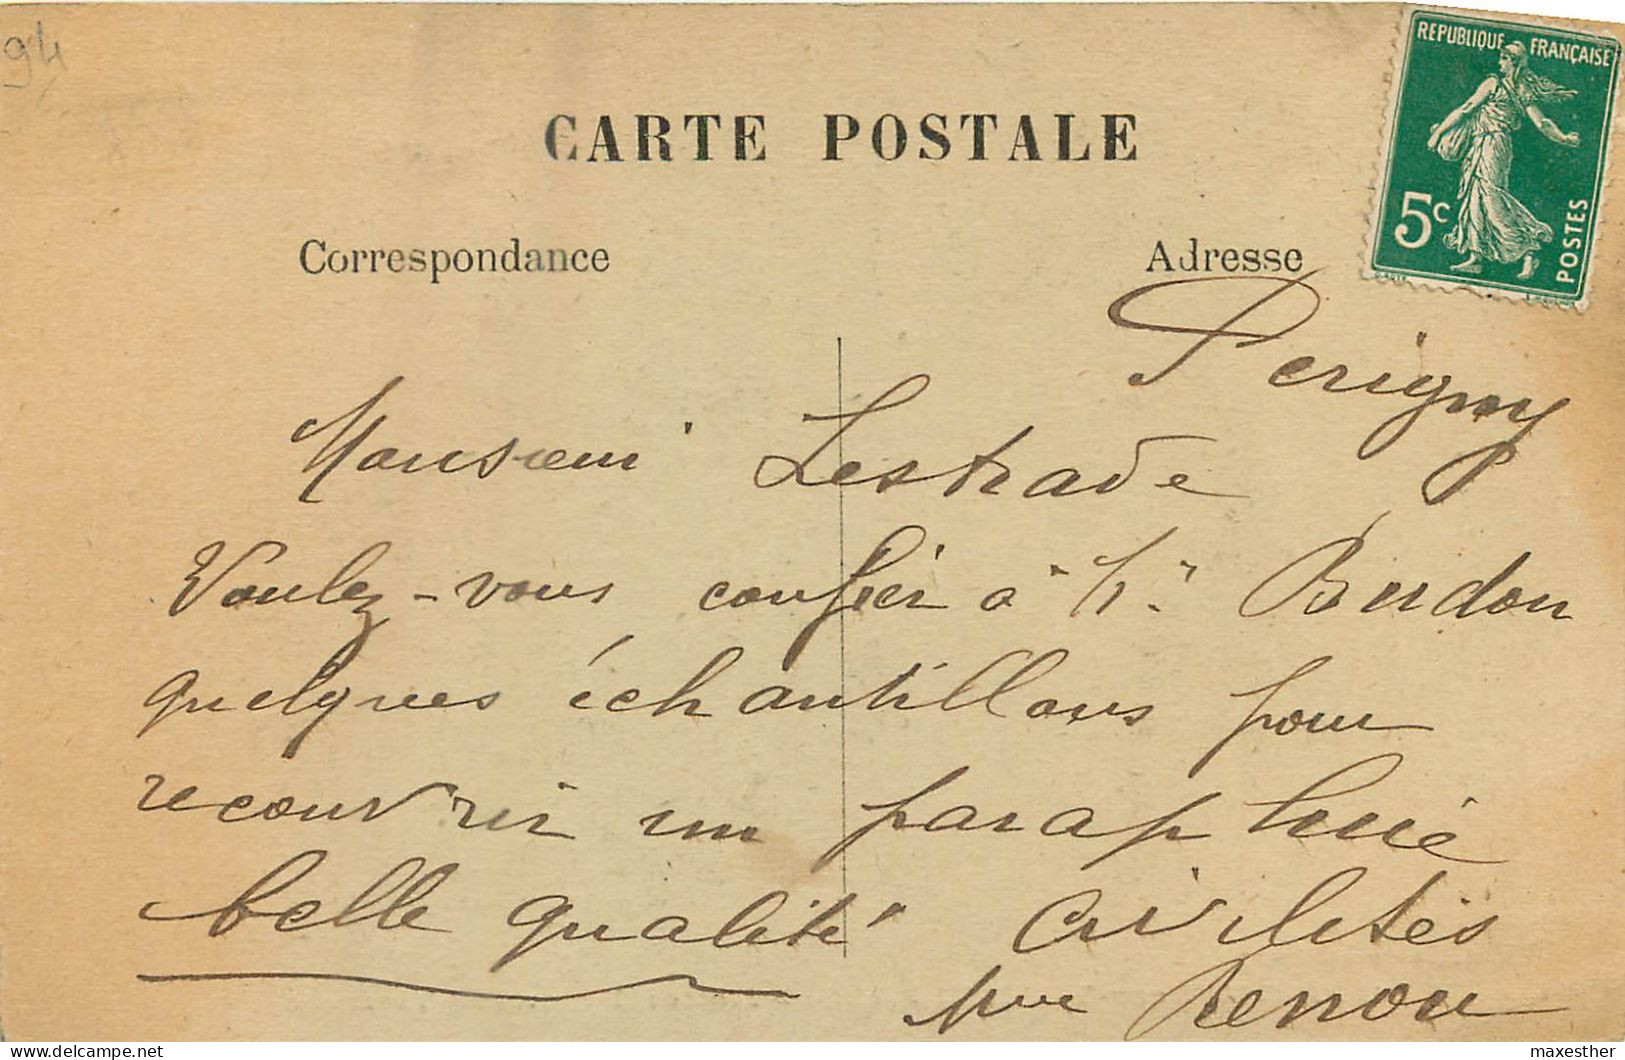 94
REPUBLIQUE FRANÇAISE
5c
POSTES
CARTE POSTALE
Correspondance
Adresse
Perigny
Monsieur Lestrade
Voulez-vous confier à Burdon
quelques échantillons pour
recouvrir un parapluie
belle qualité Civilités
Mme Renou
delcampe.net
maxesther